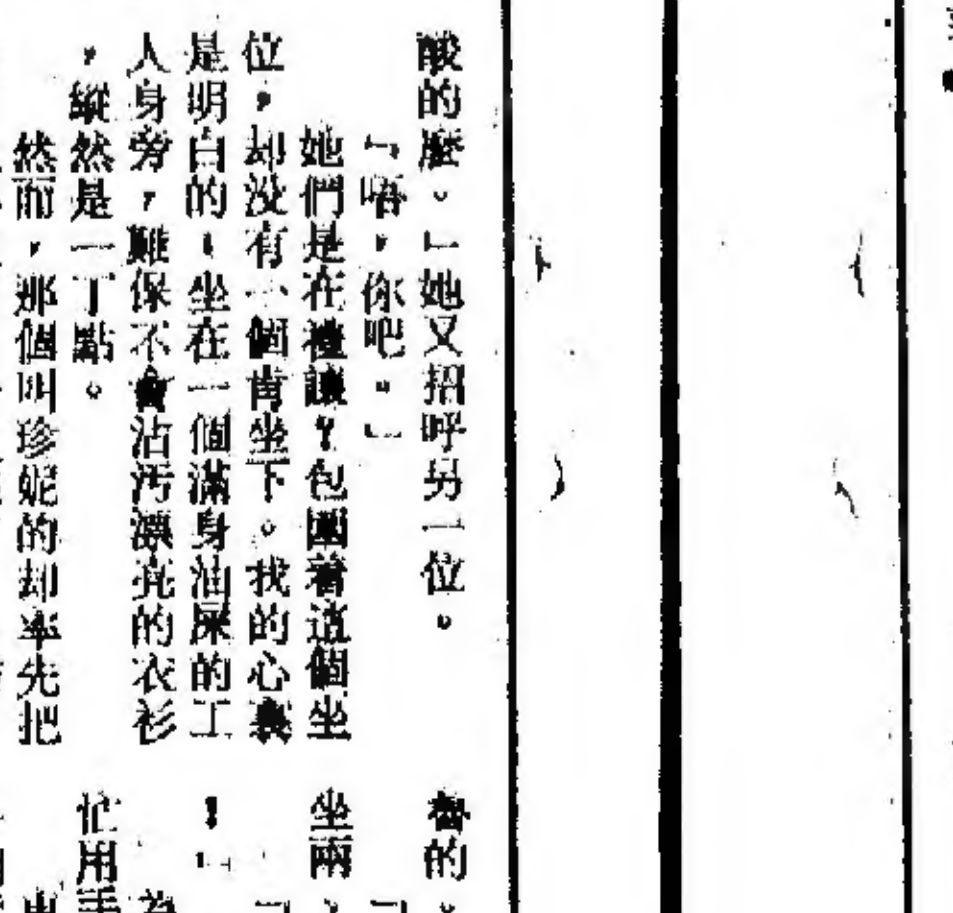 酸的麼。」她又招呼另一位。
「唔，你吧。」
她們是在禮讓？包圍着這個坐
位，却没有一個肯坐下。我的心裏
是明白的！坐在一個滿身油屎的工
人身旁，難保不會沾污漂亮的衣衫
，縱然是一丁點。
然而，那個叫珍妮的却率先把
的
坐兩
！」
忙用手